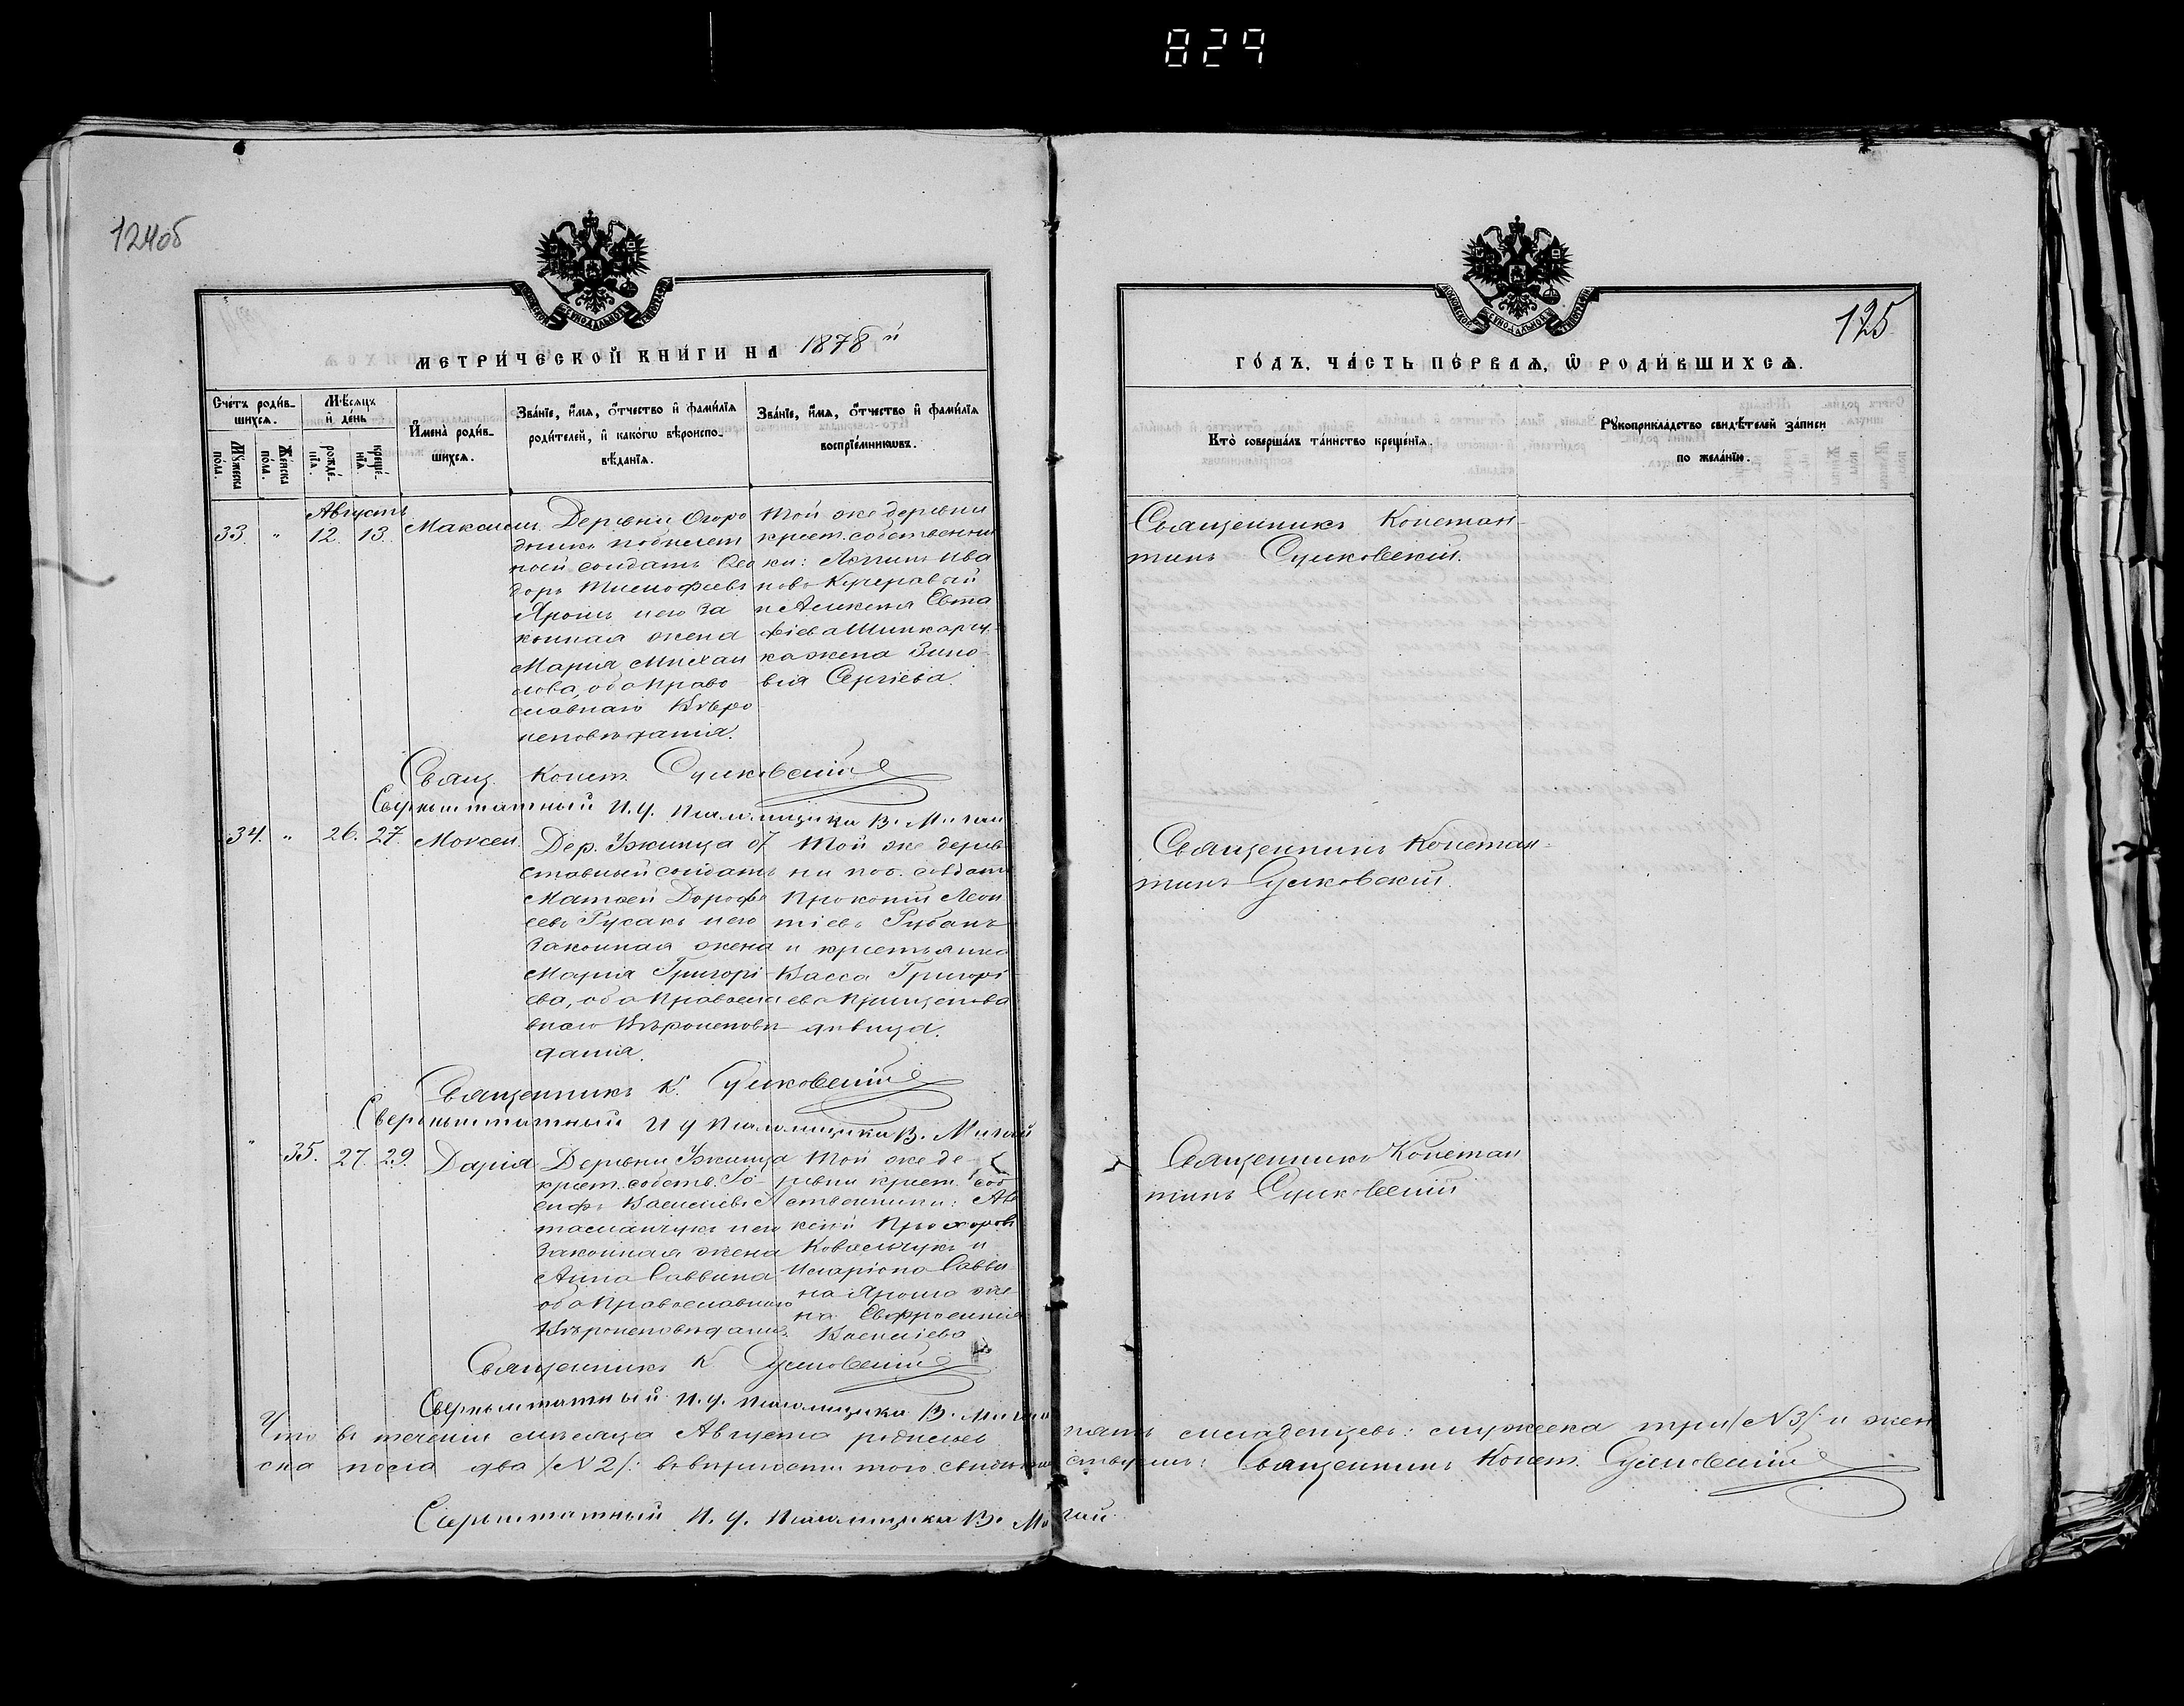 829
124об
125
МЕТРИ́ЧЕСКОЙ КНИ́ГИ НА 1878й
ГО́ДЪ, ЧА́СТЬ ПЕ́РВАѦ, Ѡ҆ РОДИ́ВШИХСѦ.
Счетъ роди́в-
шихсѧ.
Мꙋ́жеска по́ла.
Же́нска по́ла.
Мѣ́сѧцъ
и҆ день
рожде́-
нїѧ.
креще́-
нїѧ.
И҆мена̀ роди́в-
шихсѧ.
Зва́нїе, и҆́мѧ, ѻ҆́тчество и҆ фами́лїѧ
роди́телей, и҆ како́гѡ вѣроиспо-
вѣ́данїѧ.
Зва́нїе, и҆́мѧ, ѻ҆́тчество и҆ фами́лїѧ
воспрїе́мникѡвъ.
Кто̀ соверша́лъ та́инство креще́нїѧ.
Рꙋкоприкла́дство свидѣ́телей за́писи
по жела́нїю.
Августъ
33. " 12. 13. Максимъ.
Деревни Огоро
дникъ
ной солдатъ Ѳео
доръ Тимофеевъ
Ярошъ и его за
конная жена
Марія Михаи
лова, оба право
славнаго вѣро
исповѣданія.
Той же деревни
крест. собственни
ки: Логинъ Ива
новъ Кучеравый
и Евста
фіева Шинкару
ка жена Зино
вія Сергіева.
Священникъ Констан-
тинъ Сулковскій.
Свящ. Конст. Сулковскій
Сверхштатный И. д. псаломщика В. Мигай
34. " 26. 27. Моисей.
Дер. Ужинца от
ставный солдатъ
Матвей Дорофе
евъ Русакъ и его
законная жена
Марія Григорі
ева, оба правосла
внаго вѣроисповѣ
данія.
Той же дерев
ни пов. солдатъ
Прокопій Леон
тіевъ Рубанъ
и крестьянка
Васса Григорі
ева Прищепова
дѣвица.
Священникъ Констан-
тинъ Сулковскій.
Священникъ К. Сулковскій
Сверхштатный И д псаломщика В. Мигай
" 35. 27. 29. Дарія
Деревни Ужинца
крест. собств. Іо-
сифъ Василіевъ
и его
законная жена
Анна Саввина
оба православнаго
вѣроисповѣданія.
Той же де-
ревни крест. соб
ственники: Ав
ксій Прохоровъ
Ковальчукъ и
Иларіона Савви
на Яроша же-
на Евфросинія
Василіева
Священникъ Констан
тинъ Сулковскій
Священникъ К. Сулковскій
Сверхштатный И. д. псаломщика В. Мигай
Что въ теченіи мѣсяца Августа родилось пять младенцевъ: мужеска три /№3/ и жен
ска пола два /№2/: въ вѣрности того свидѣтельствуемъ: Священникъ Конст. Сулковскій
Сверхштатный И. д. псаломщика В. Мигай